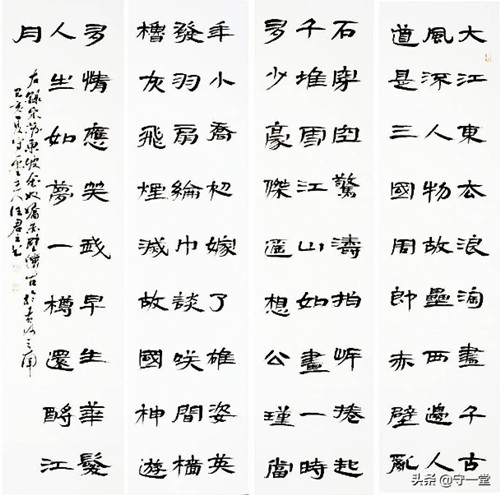 大江東去浪淘盡千古
風流人物故壘西邊人
道是三國周郎赤壁亂
石穿空驚濤拍岸捲起
千堆雪江山如畫一時
多少豪傑遥想公瑾當
年小喬初嫁了雄姿英
發羽扇綸巾談笑間檣
櫓灰飛煙滅故國神遊
多情應笑我早生華髮
人生如夢一樽還酹江
月
右錄宋蘇東坡念奴嬌赤壁懷古
头条 @守一堂